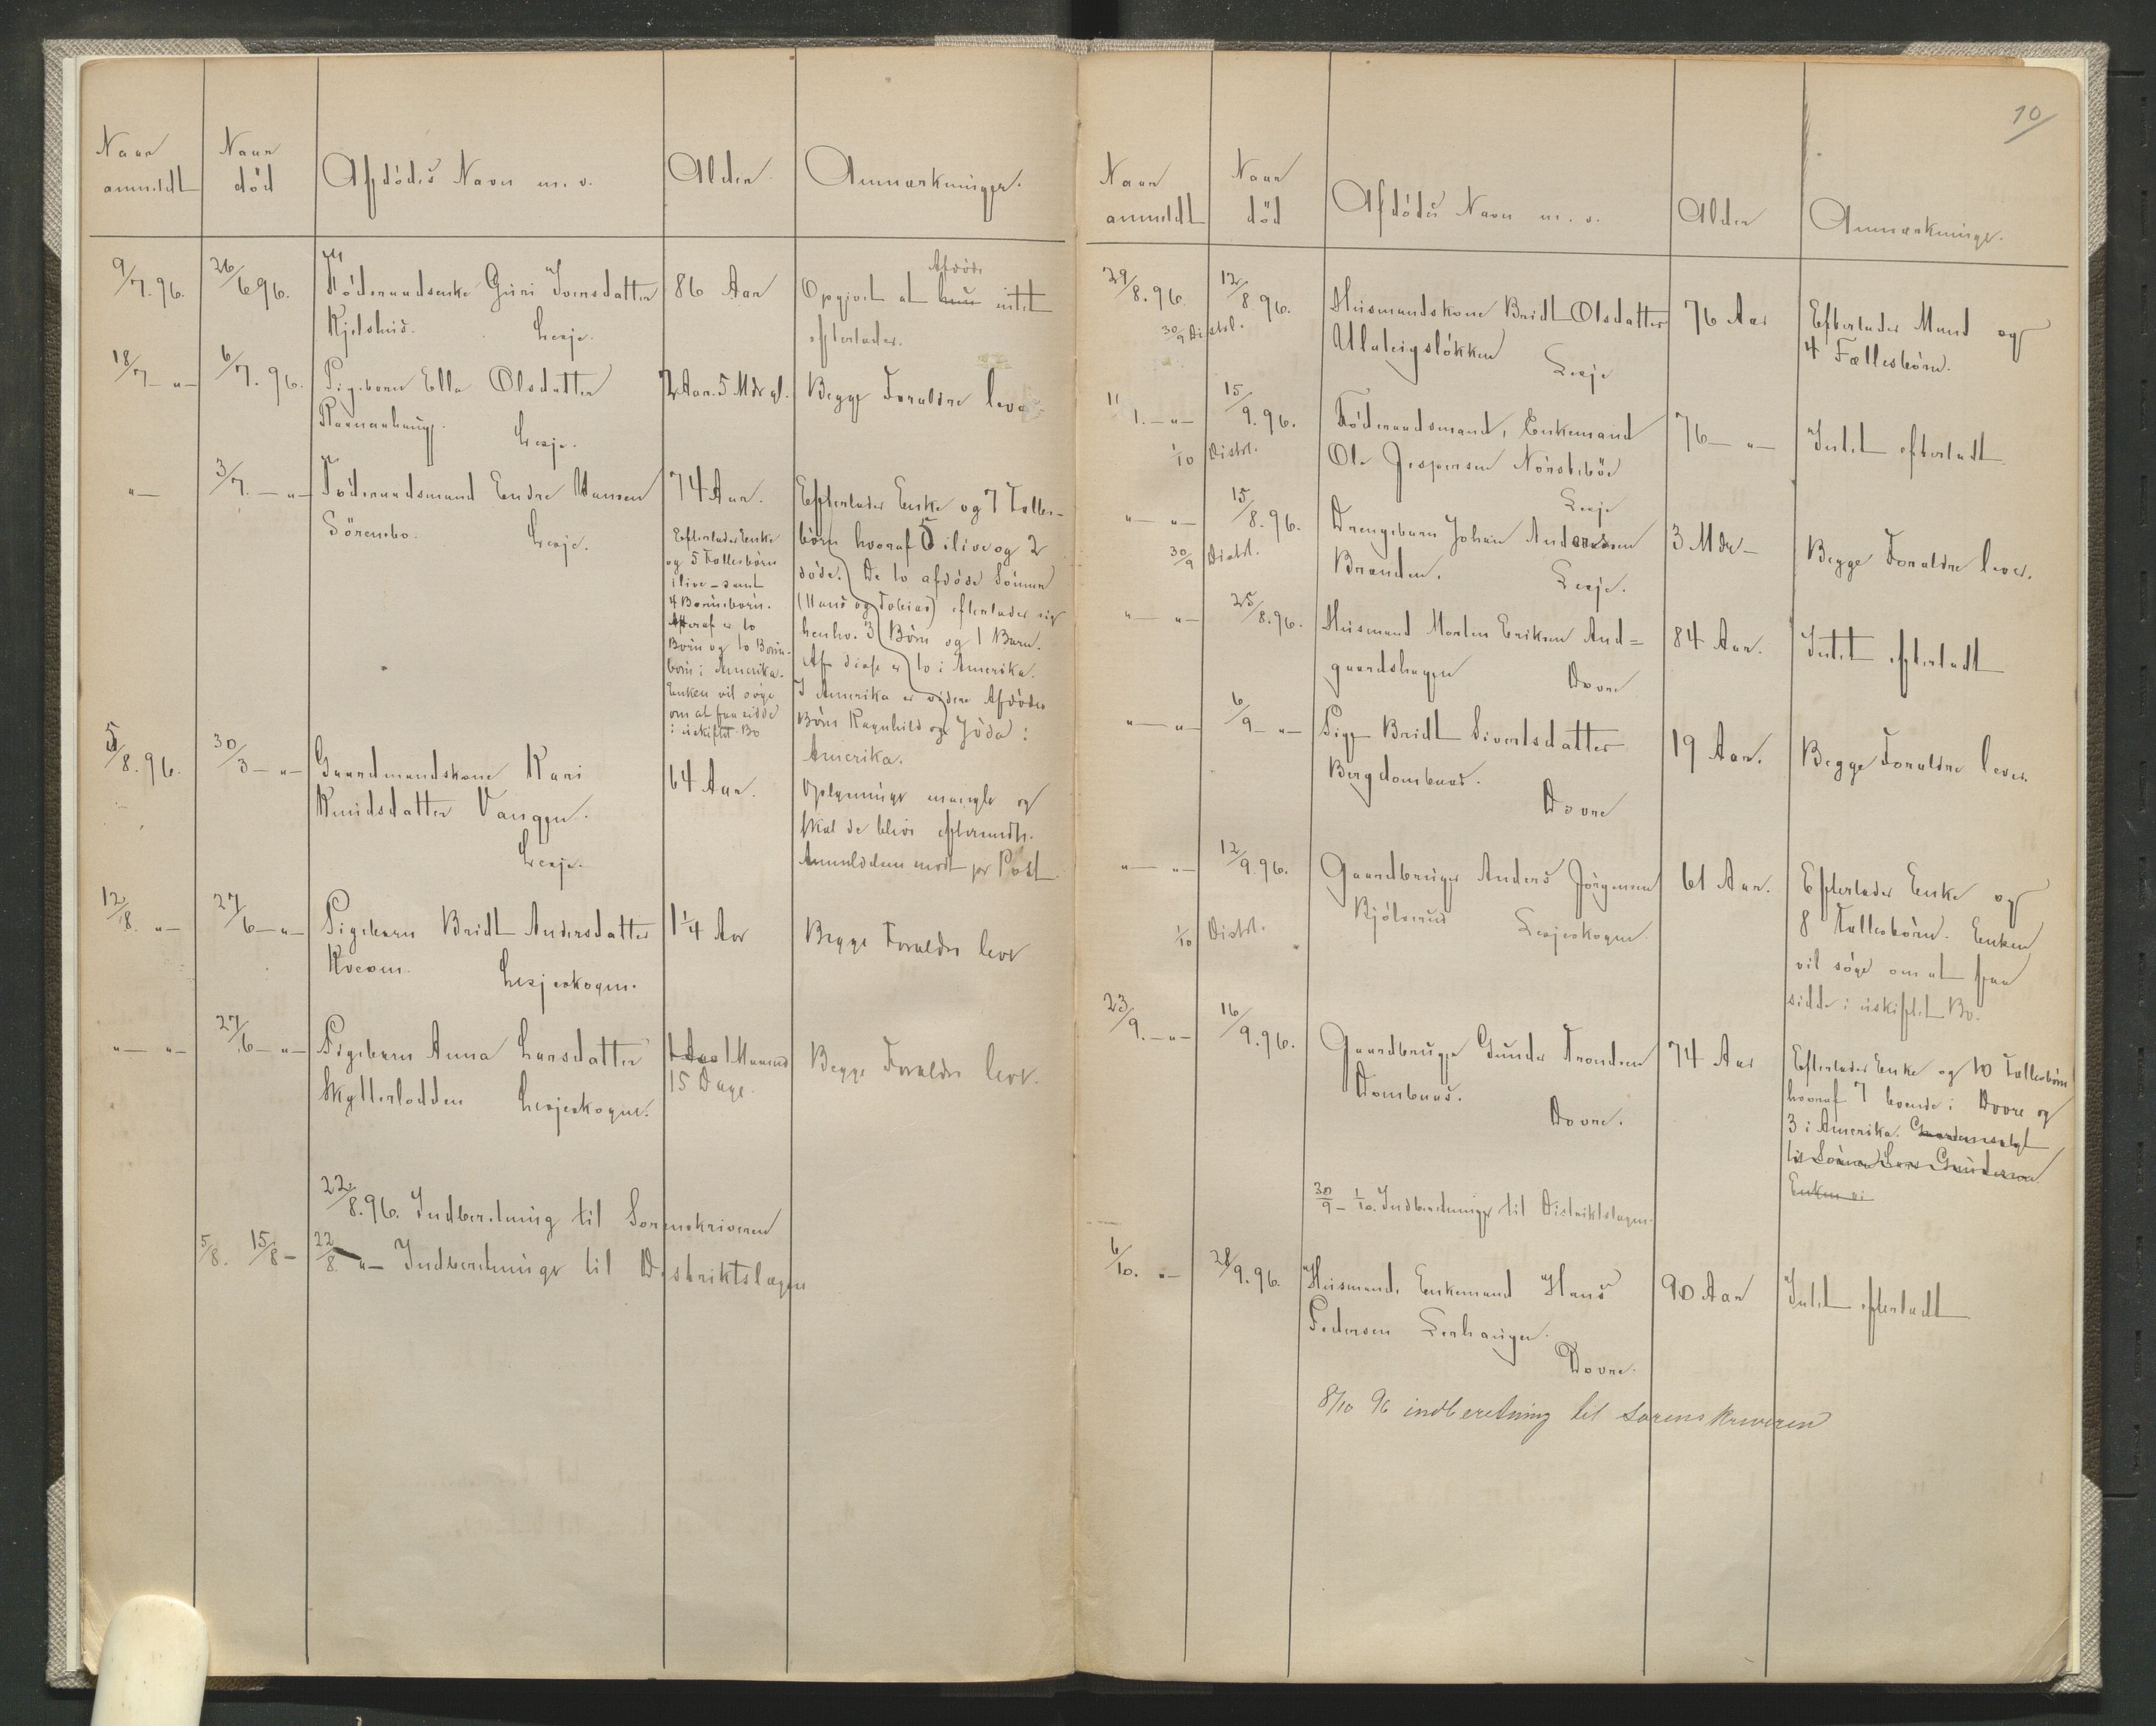 Naar anmeldt
Naar död
Afdödes Navn m. v.
Alder
Anmærkninger.
9/7. 96.
26/6 96.
Föderaadsenke Guri Iversdatter
Kjelshus. Lesje.
86 Aar
Opgivet at hun Afdöde intet
efterlader.
18/7 - " -
6/7. 96.
Pigebarn Ella Olsdatter
Lesje.
2 Aar. 5 Mdr gl.
Begge Forældre lever
" -
3/7. - " -
Föderaadsmand Endre Hansen
Sörembo. Lesje.
74 Aar.
Efterlader Enke
og 5 Fællesbörn
i live - samt
4 Börnebörn.
Hvoraf er to
Börn og to Börne-
börn i Amerika.
Enken vil söge
om at faa sidde
i uskiftet Bo
Efterlader Enke og 7 Fælles-
börn hvoraf 5 ilive og 2
döde. De to afdöde Sönner
(Hans og Tobias) efterlader sig
henhv. 3 Börn og 1 Barn.
Af disse er to i Amerika.
I Amerika er videre Afdödes
Börn Ragnhild og Jöda i
Amerika.
5/8. 96.
30/3 - " -
Gaardmandskone Kari
Knudsdatter Vangen.
Lesje.
64 Aar.
Oplysninger mangler og
skal de blive eftersendt.
Anmeldelsen modt pr Post
12/8. " -
27/6 - " -
Pigebarn Bridt Andersdatter
Kvesum. Lesjeskogen.
1 1/4 Aar
Begge Forældre lever
" - " -
27/6 - " -
Pigebarn Anna Larsdatter
Skytterlodden Lesjeskogen.
1 Aar 1 Maaned
15 Dage.
Begge Forældre lever.
22/8. 96. Indberetning til Sorenskriveren
5/8. 15/8 - 22/8 " - Indberetninger til Distriktslægen
10
Naar anmeldt
Naar död
Afdödes Navn m. v.
Alder
Anmærkninger.
29/8. 96.
30/9 Distrl.
12/8 96.
Husmandskone Bridt Olsdatter
Ulateigslökken Lesje
76 Aar
Efterlader Mand og
4 Fællesbörn.
1. - " -
1/10 Distrl.
15/9. 96.
Föderaadsmand, Enkemand
Ole Jespersen Nörstebö
Lesje
76 - " -
Intet efterladt
" - " -
30/9 Distrl.
15/8. 96.
Drengebarn Johan Andersen
Brænden. Lesje.
3 Mdr -
Begge Forældre lever.
" - " -
25/8. 96.
Husmand Morten Eriksen And=
gaardshagen Dovre
84 Aar.
Intet efterladt
" - " -
6/9 - " -
Pige Bridt Sivertsdatter
Bergdombaas.
Dovre
19 Aar.
Begge Forældre lever.
" - " -
1/10 Distrl.
12/9. 96.
Gaardbruger Anders Jörgensen
Bjölverud Lesjeskogen.
61 Aar.
Efterlader Enke og
8 Fællesbörn. Enken
vil söge om at faa
sidde i uskiftet Bo.
23/9. - " -
16/9. 96.
Gaardbruger Gunder Trondsen
Dombaas.
Dovre.
74 Aar
Efterlader Enke og 10 Fællesbörn
hvoraf 7 boende i Dovre og
3 i Amerika. Gaarden solgt
til Sönnen Lars Gundersen
Enken vi
30/9 - 1/10. Indberetninger til Distriktslægen.
6/10. " -
28/9. 96.
Husmand, Enkemand Hans
Pedersen Lerhaugen.
Dovre.
90 Aar
Intet efterladt
8/10 96 indberetning til Sorenskriveren